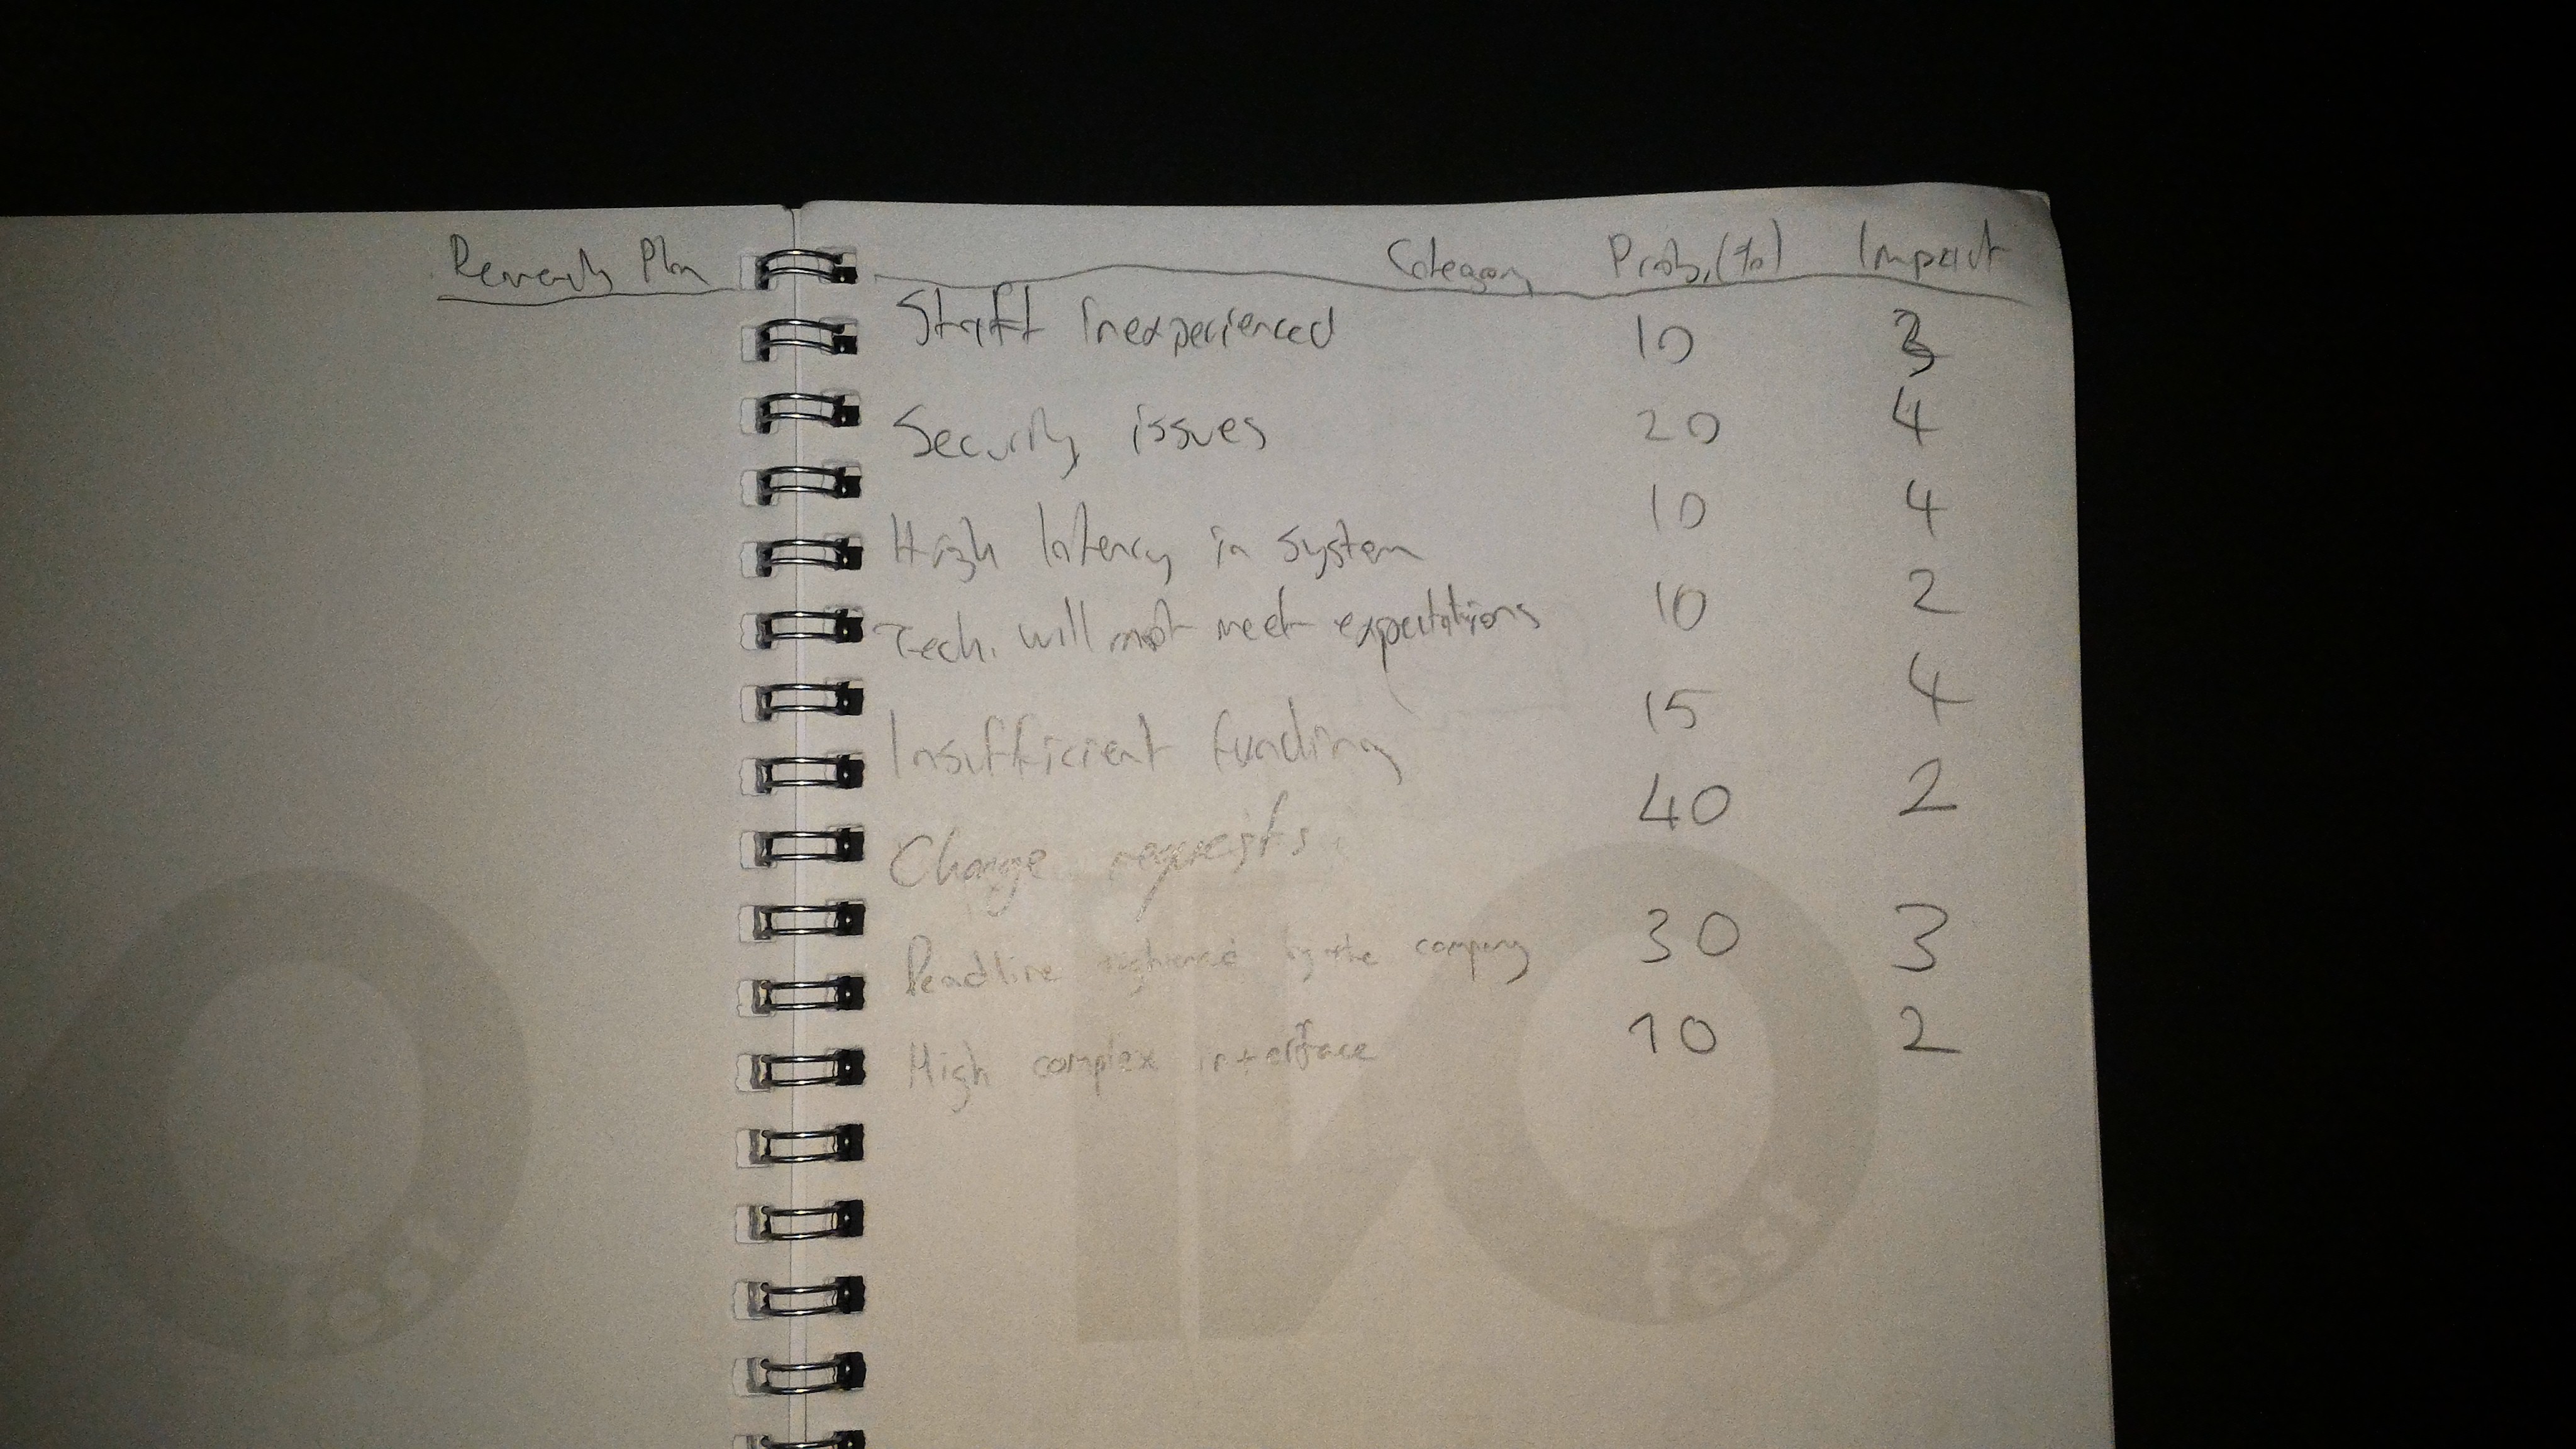 Remendy Plan
Category Probability Impact
Staff inexperienced 10 3
Security issues 20 4
High latency in system 10 4
Tech. will not meet expectations 10 2
Insufficient funding 15 4
Change 40 2
Deadline by the company 30 3
High complex interface 10 2
fost
fost